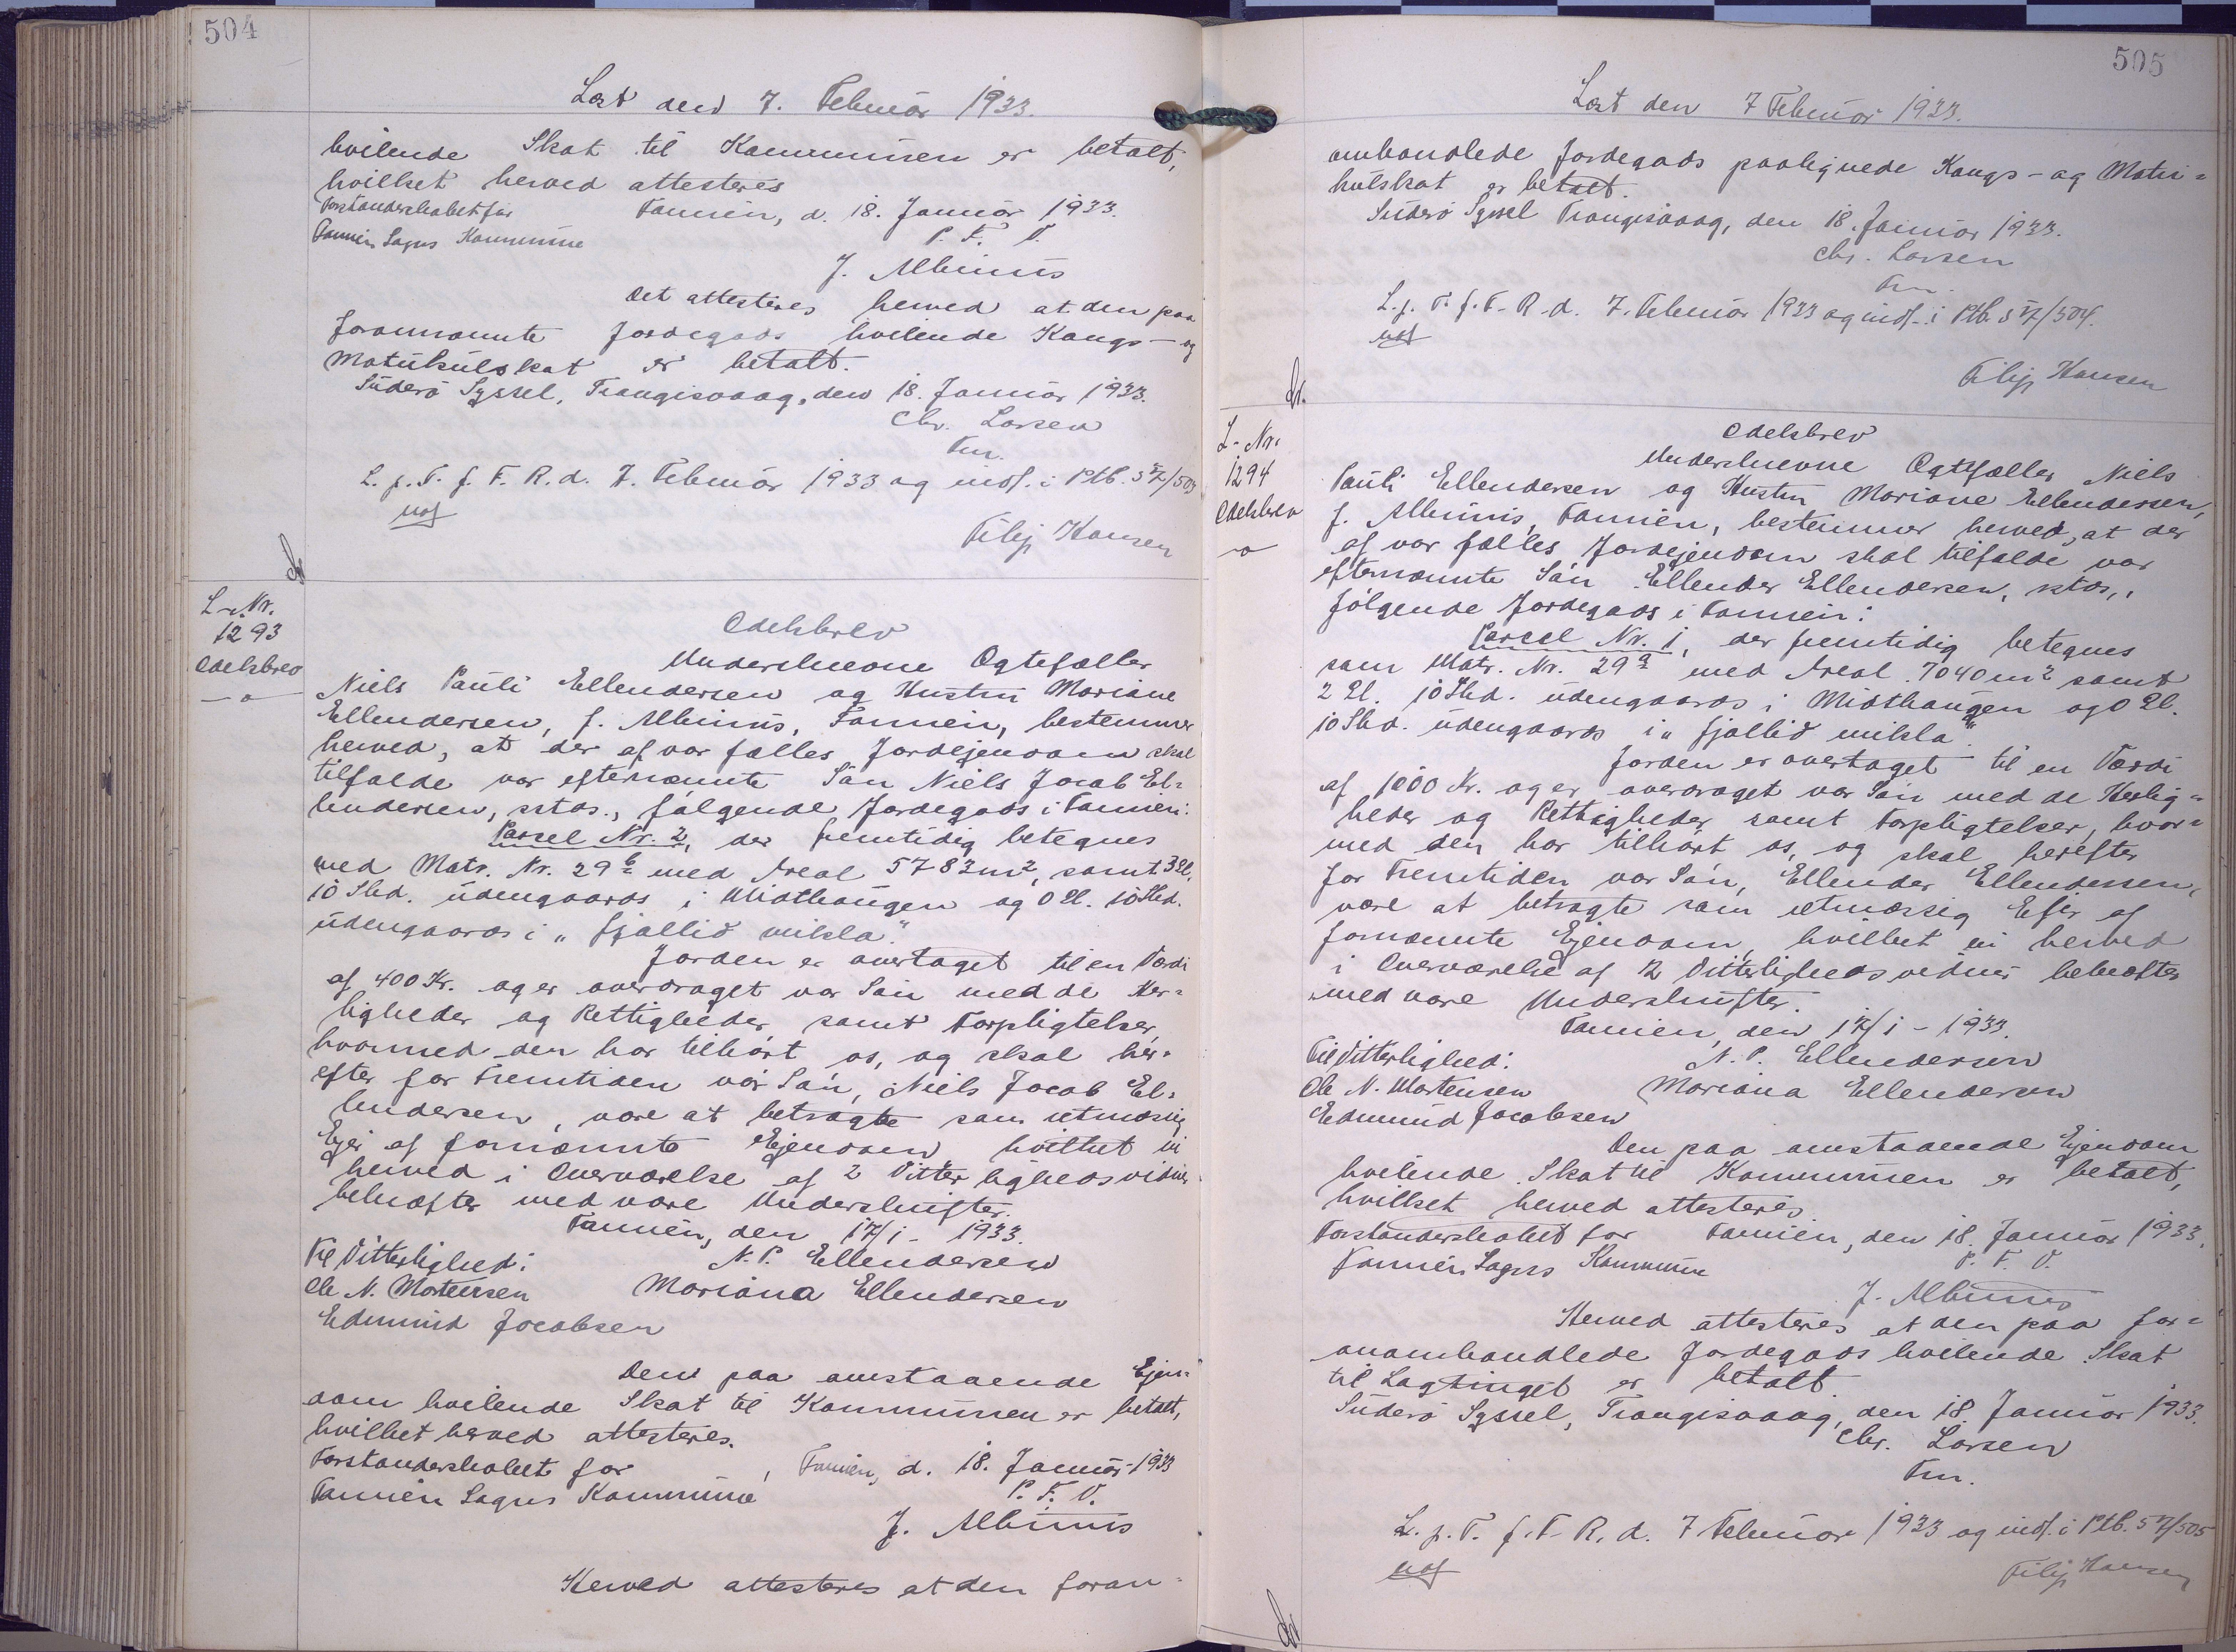 504
Læst den 7. Februar 1933.
hvilende Skat til Kommunen er betalt,
hvilket herved attesteres
Forstanderskabet for Famien, d. 18. Januar 1933.
Famien Sogns Kommune P. F. V.
J. Albinus
Det attesteres herved at den paa
forannævnte Jordegods hvilende Kongs- og
Matrikulskat er betalt.
Süderø Syssel, Trangisvaag, den 18. Januar 1933.
Chr. Larsen
Fm.
L. p. T. f. F. R. d. 7. Februar 1933 og indf. i Ptb. 57/503
Filip Hansen
L-Nr.
1293
Odelsbrev
Odelsbrev
Underskrevne Ægtefæller
Niels Pauli Ellendersen og Hustru Mariane
Ellendersen, f. Albinus, Famien, bestemmer
herved, at der af vor fælles Jordejendom skal
tilfalde vor efternævnte Søn Niels Jacob El=
lendersen, sstds., følgende Jordegods i Famien:
Parcel Nr. 2, der fremtidig betegnes
med Matr. Nr. 29b med Areal 5783 m², samt 3 Gl.
10 Skd. udengaards i Midthaugen og 0 Gl. 10 Skd.
udengaards i "Fjallid mikla".
Jorden er overtaget til en Værdi
af 400 Kr. og er overdraget vor Søn med de Her=
ligheder og Rettigheder samt Forpligtelser,
hvormed den har tilhørt os, og skal her=
efter for Fremtiden vor Søn, Niels Jacob El=
lendersen, være at betragte som retmæssig
Ejer af fornævnte Ejendom hvilket vi
herved i Overværelse af 2 Vitterlighedsvidner
bekræfter med vore Underskrifter.
Famien, den 17/1 - 1933.
Til Vitterlighed: N. P. Ellendersen
Ole N. Mortensen Mariana Ellendersen
Edmund Jacobsen
Den paa omstaaende Ejen=
dom hvilende Skat til Kommunen er betalt,
hvilket herved attesteres.
Forstanderskabet for Famien, d. 18. Januar 1933
Famien Sogns Kommune P. F. V.
J. Albinus
Herved attesteres at den foran=
505
Læst den 7 Februar 1933.
omhandlede Jordegods paalignede Kongs- og Matri=
kulskat er betalt.
Süderø Syssel Trangisvaag, den 18. Januar 1933.
Chr. Larsen
Fm.
L. p. T. f. F. R. d. 7. Februar 1933 og indf. i Ptb. 57/504.
Filip Hansen
L-Nr.
1294
Odelsbrev
Odelsbrev
Underskrevne Ægtefæller Niels
Pauli Ellendersen og Hustru Mariane Ellendersen,
f. Albinus, Famien, bestemmer herved, at der
af vor fælles Jordejendom skal tilfalde vor
efternævnte Søn Ellender Ellendersen, sstds.,
følgende Jordegods i Famien:
Parcel Nr. 1, der fremtidig betegnes
som Matr. Nr. 29a med Areal 7040 m² samt
2 Gl. 10 Skd. udengaards i Midthaugen og 0 Gl.
10 Skd. udengaards i "Fjallid mikla".
Jorden er overtaget til en Værdi
af 1000 Kr. og er overdraget vor Søn med de Herlig=
heder og Rettigheder samt Forpligtelser, hvor=
med den har tilhørt os, og skal herefter
for Fremtiden vor Søn, Ellender Ellendersen,
være at betragte som retmæssig Ejer af
fornævnte Ejendom, hvilket vi herved
i Overværelse af 2 Vitterlighedsvidner bekræfter
med vore Underskrifter.
Famien, den 17/1 - 1933.
Til Vitterlighed: N. P. Ellendersen
Ole N. Mortensen Mariana Ellendersen
Edmund Jacobsen
Den paa omstaaende Ejendom
hvilende Skat til Kommunen er betalt,
hvilket herved attesteres
Forstanderskabet for Famien, den 18. Januar 1933.
Famien Sogns Kommune P. F. V.
J. Albinus
Herved attesteres at den paa for=
anomhandlede Jordegods hvilende Skat
til Lagtinget er betalt
Süderø Syssel, Trangisvaag, den 18. Januar 1933.
Chr. Larsen
Fm.
L. p. T. f. F. R. d. 7 Februar 1933 og indf. i Ptb. 57/505
Filip Hansen